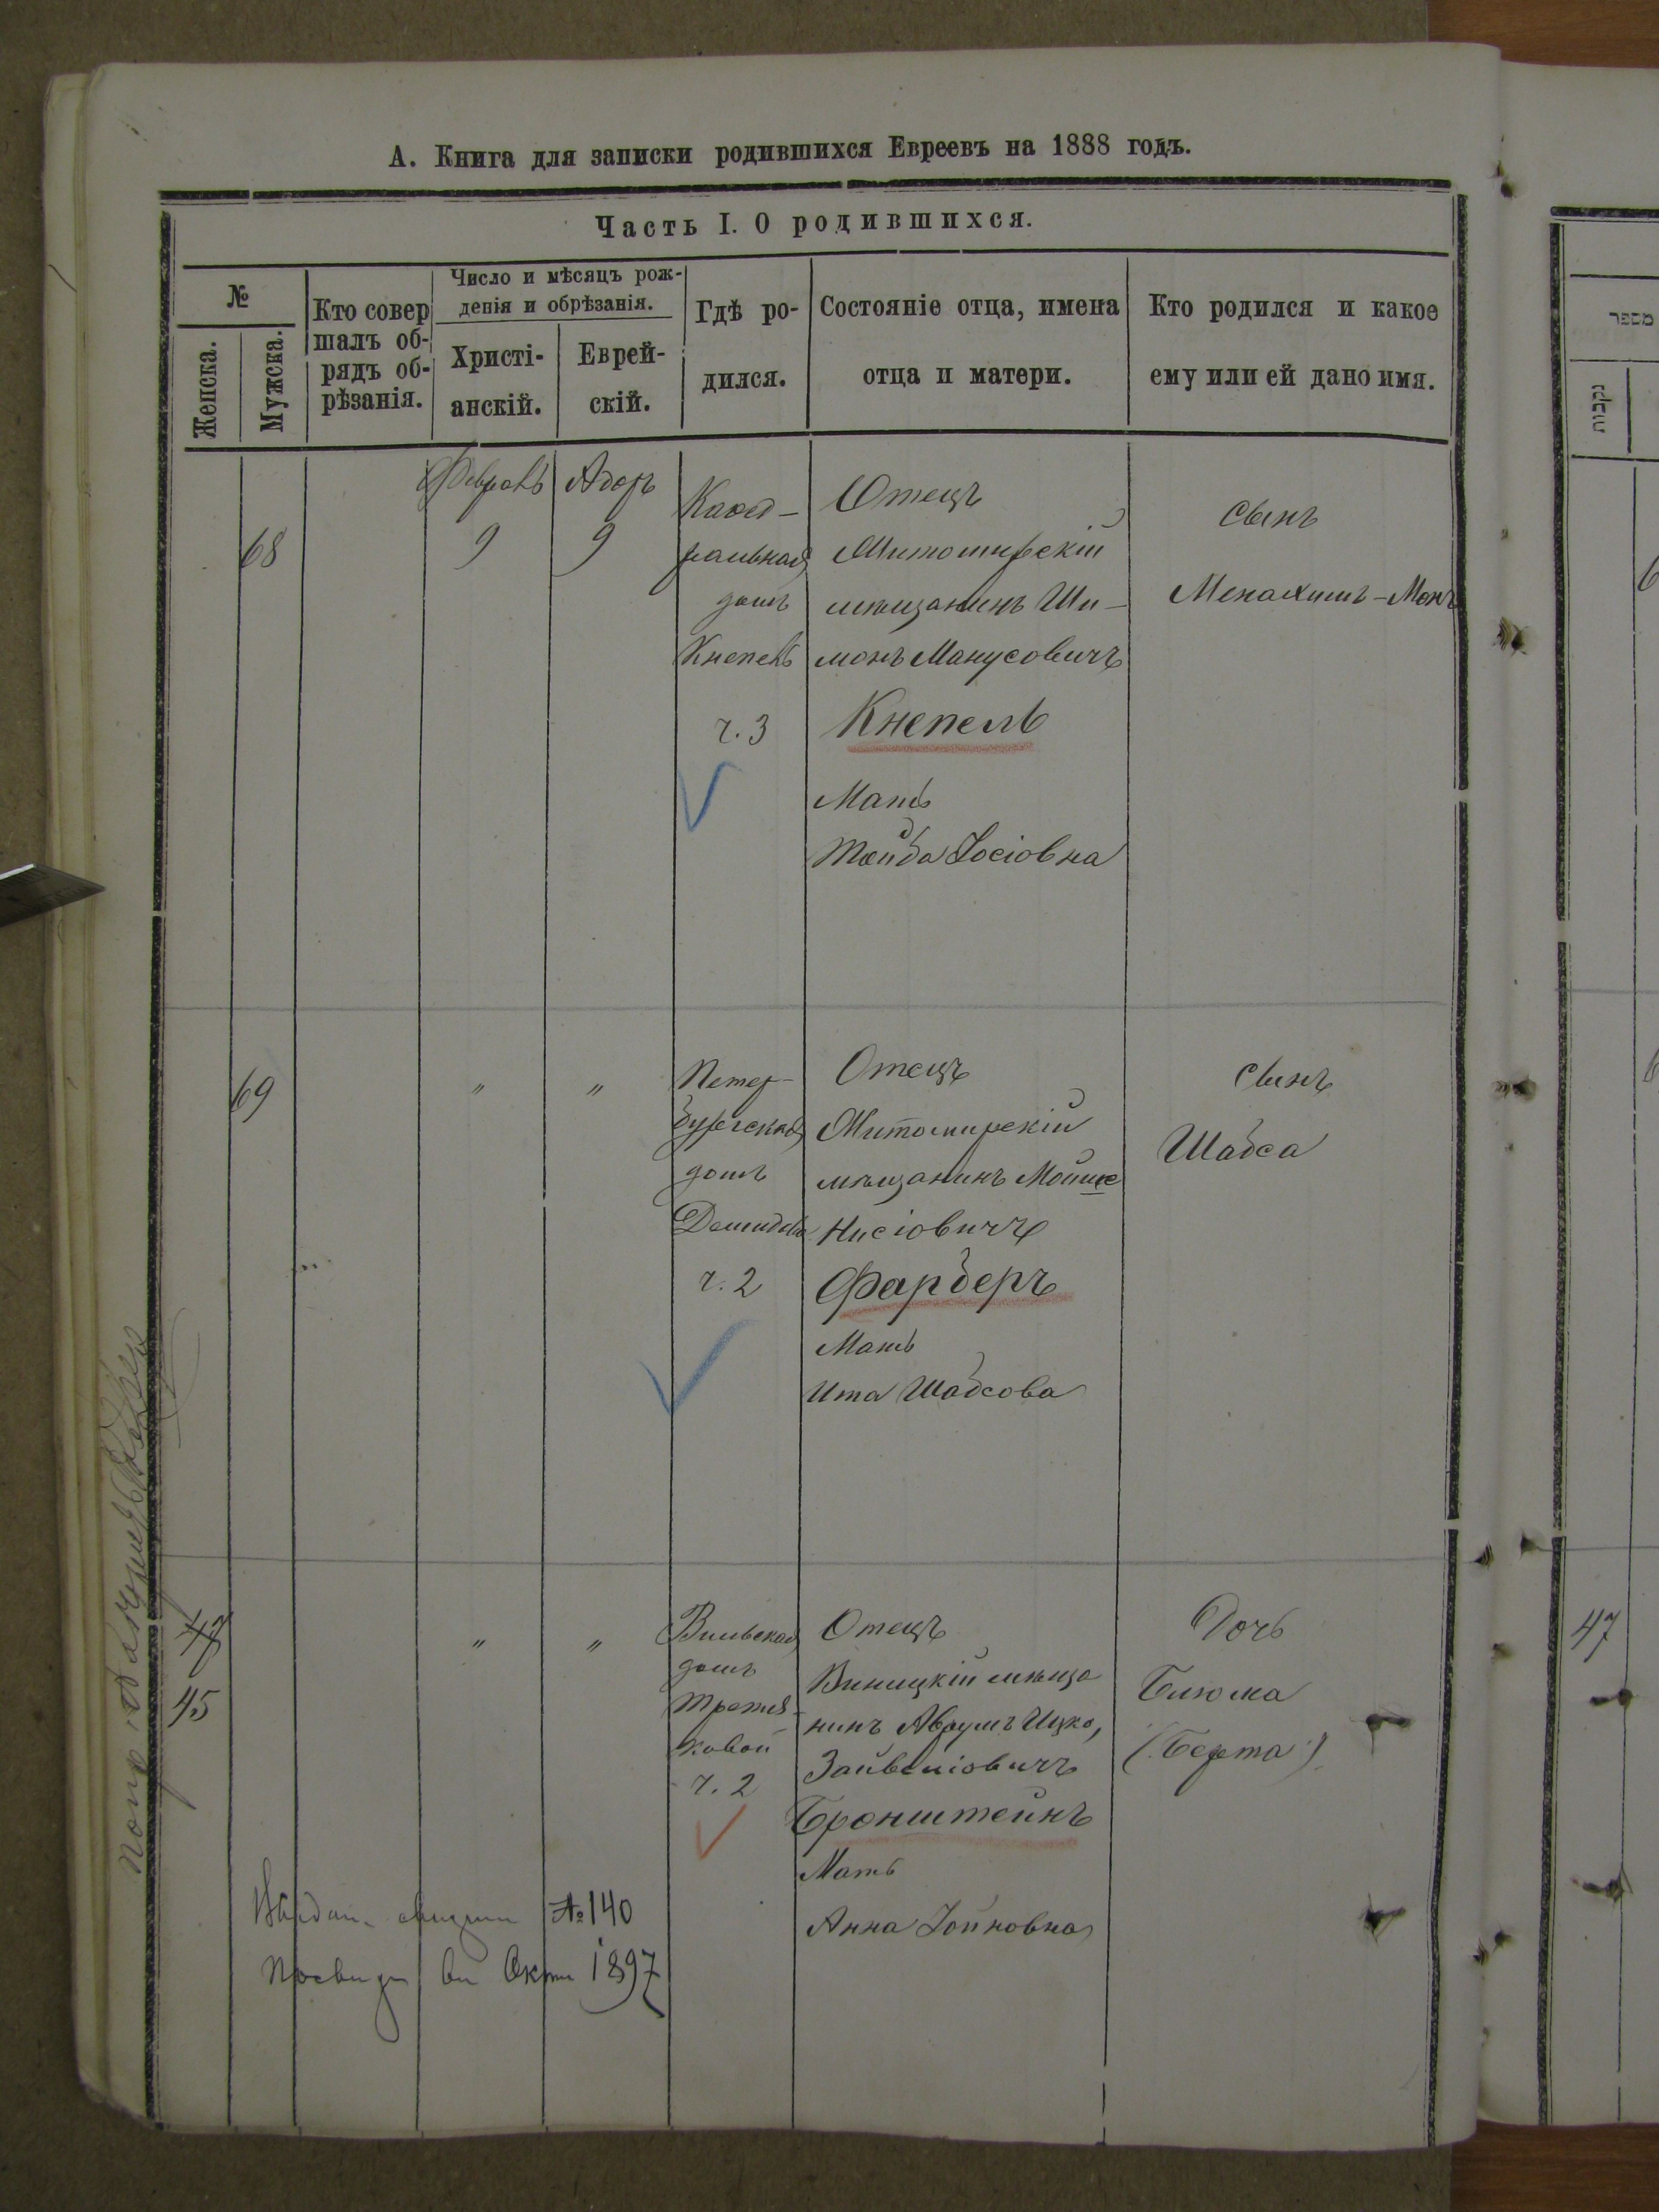 А. Книга для записки родившихся Евреевъ на 1888 годъ.
Часть I. О родившихся.
№
Женска.
Мужска.
Кто совер
шалъ об-
рядъ об-
рѣзанія.
Число и мѣсяцъ рож-
денія и обрѣзанія.
Христі-
анскій.
Еврей-
скій.
Гдѣ ро-
дился.
Состояніе отца, имена
отца и матери.
Кто родился и какое
ему или ей дано имя.
68
Февраль
9
Адоръ
9
Каѳед-
ральная
домъ
Кнепель
ч. 3
Отецъ
Житомирскій
мѣщанинъ Ши-
монъ Манусовичъ
Кнепель
Мать
Тайба Іосіовна
Сынъ
Менахимъ-Монъ
69
"
"
Петер-
бургская
домъ
ч. 2
Отецъ
Житомирскій
мѣщанинъ Мойше
Нисіовичъ
Фарберъ
Мать
Ита Шабсова
Сынъ
Шабса
47
45
"
"
Вильская
домъ
Третья-
ковой
ч. 2
Отецъ
Виницкій мѣща
нинъ Аврумъ Ицко,
Зайвеліовичъ
Бронштейнъ
Мать
Анна Іойновна
Дочь
Блюма
(Берта)
№ 140
1897
מספר
נקבות
47